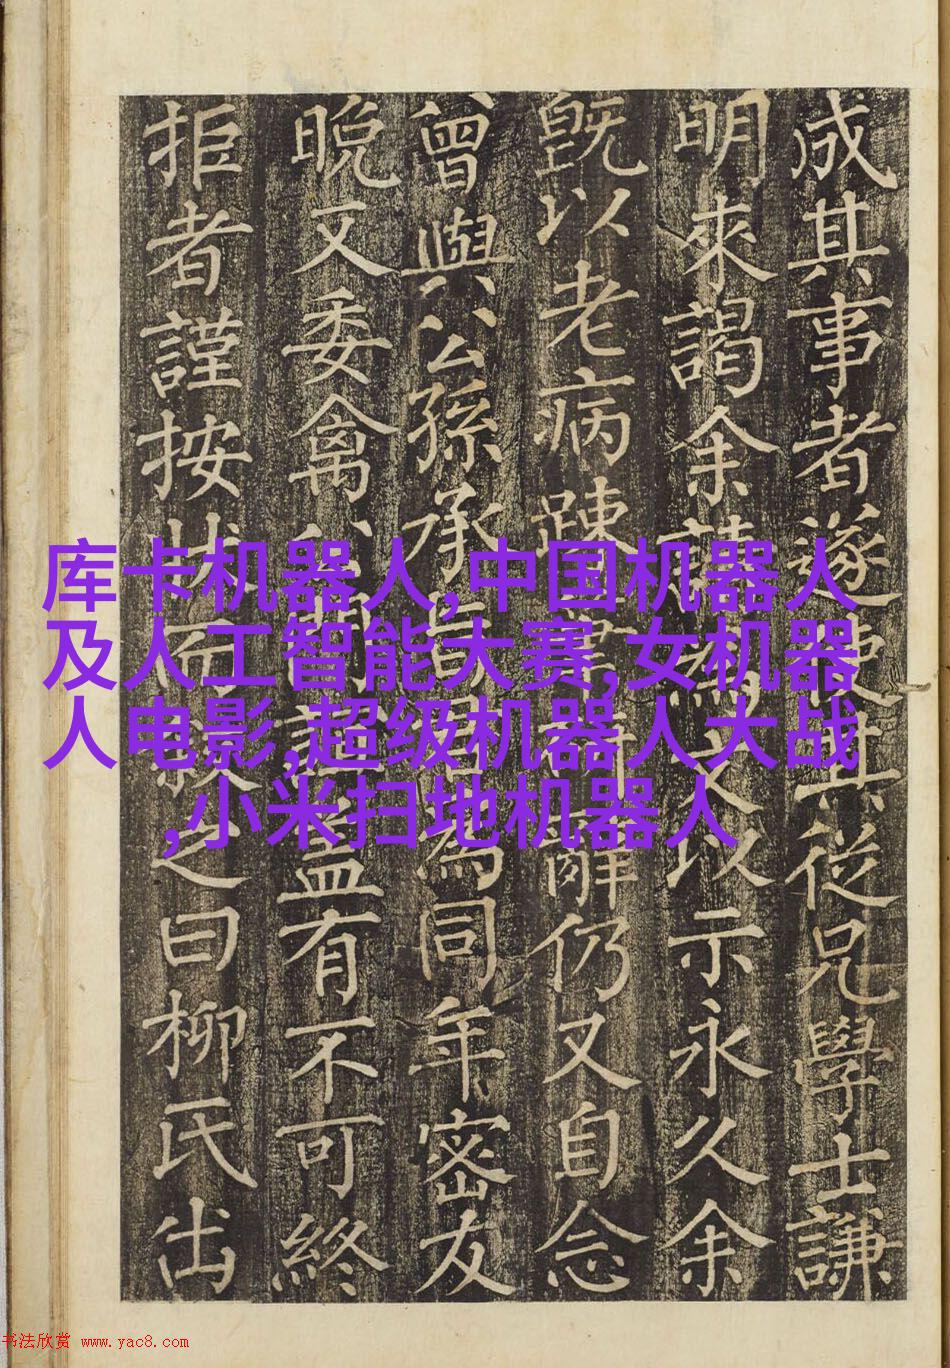 成其事者遂使其從兄學士謙
明來謁余請文以示永久余
既以老病踈辭仍又自念
曾與公孫承為同年密友
晚又委禽誼蓋有不可終
拒者謹按狀而叙之曰柳氏出
库卡机器人,中国机器人
及人工智能大赛,女机器
人电影,超级机器人大战
,小米扫地机器人
书法欣赏 www.yac8.com